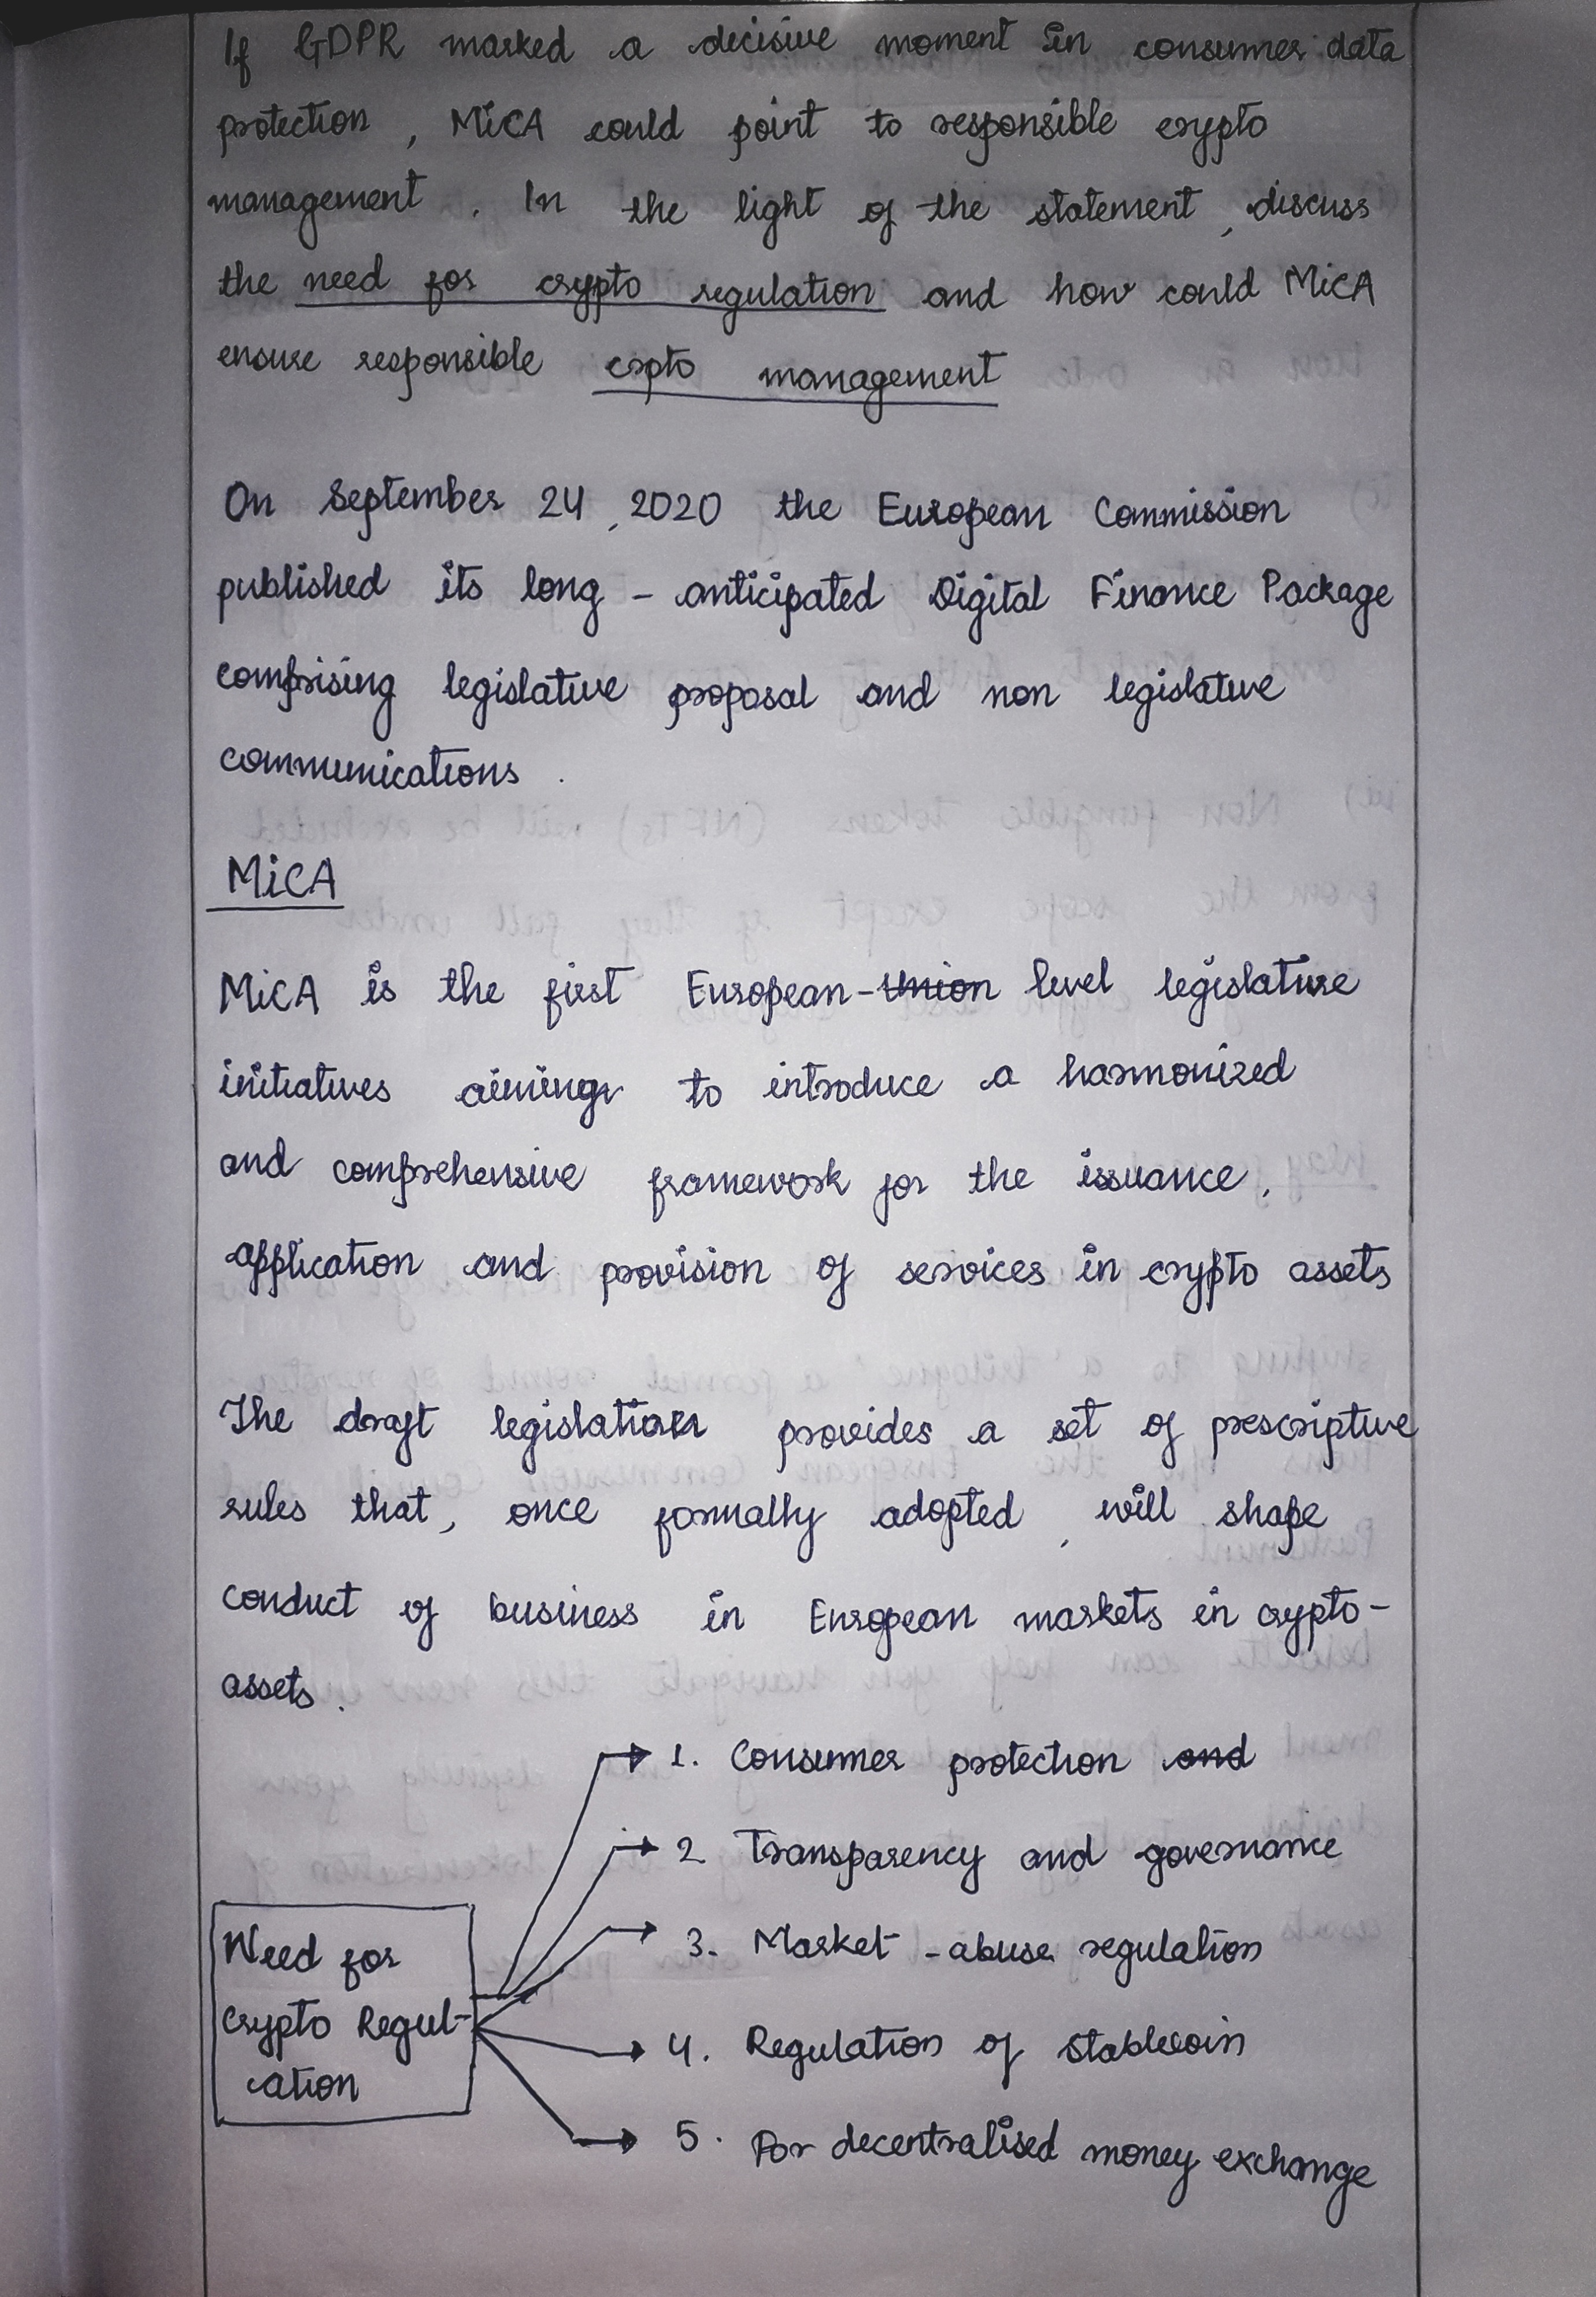 If GDPR marked a decisive moment in consumer data
protection, MiCA could point to responsible crypto
management. In the light of the statement, discuss
the need for crypto regulation and how could MiCA
ensure responsible crpto management
On September 24, 2020 the European Commission
published its long - anticipated Digital Finance Package
comprising legislative proposal and non legislative
communications.
MiCA
MiCA is the first European-Union level legislature
initiatives aiming to introduce a harmonized
and comprehensive framework for the issuance,
application and provision of services in crypto assets
The draft legislation provides a set of prescriptive
rules that, once formally adopted, will shape
conduct of business in European markets in crypto-
assets.
1. Consumer protection and
2 Transparency and governance
3. Market -abuse regulation
Need for
Crypto Regul-
ation
4. Regulation of Stablecoin
5. For decentralised money exchange